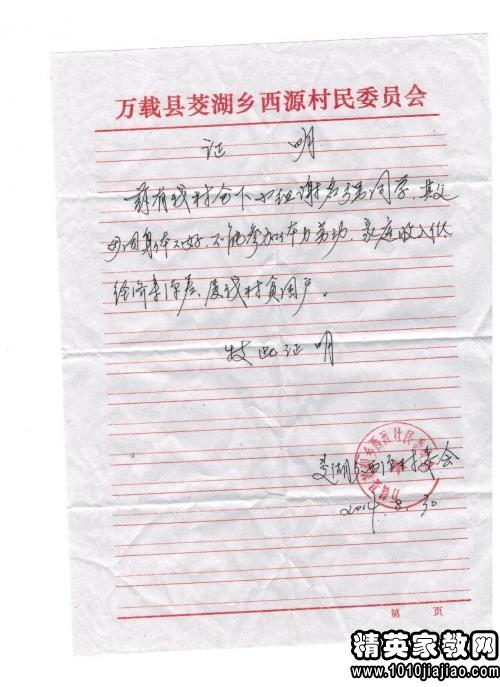 万载县茭湖乡西源村民委员会
证 明
兹有我村合下小组谢 同学,其父
母因身体不好,不能参加体力劳动,家庭收入低
经济来源差,属我村贫困户。
特此证明
茭湖乡西源村委会
2014.8.30
第 页
精英家教网
www.1010jiajiao.com